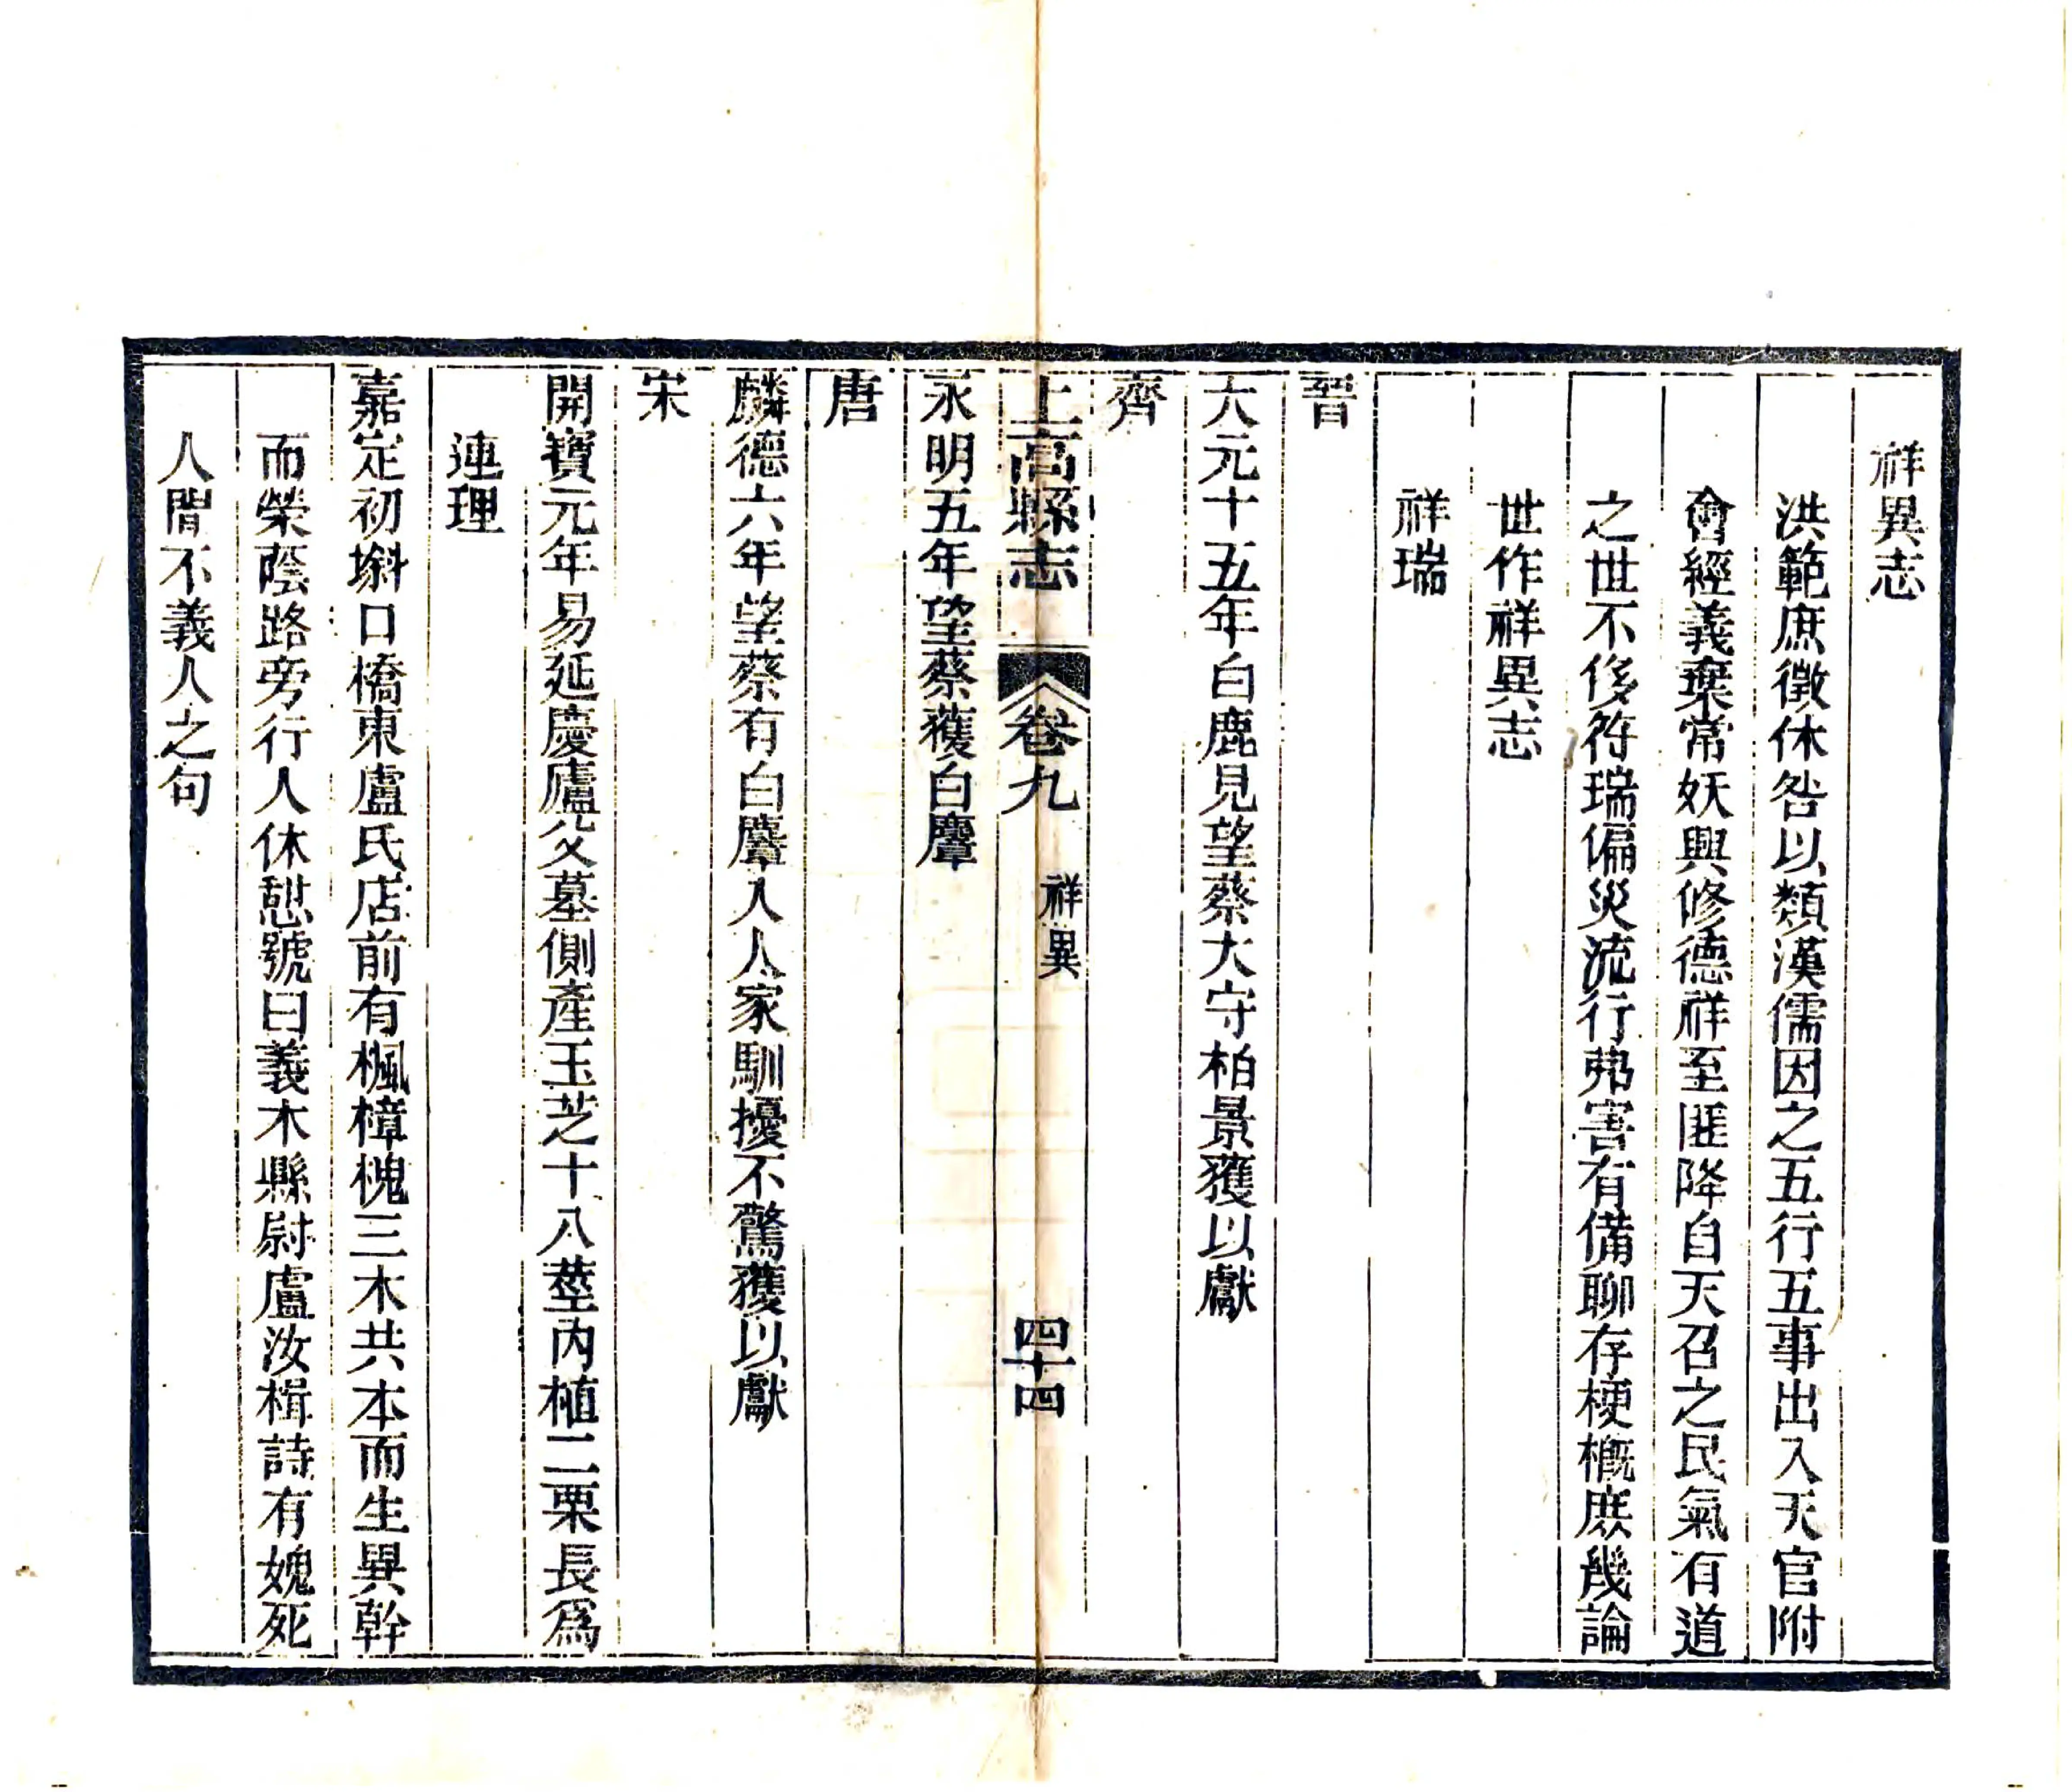 祥異志
洪範庶徵休咎以類漢儒因之五行五事出入天官附
會經義棄常妖興修德祥至匪降自天召之民氣有道
之世不侈符瑞偏災流行弗害有備聊存梗槪庶幾論
世作祥異志
祥瑞
晉
大元十五年白鹿見望蔡大守柏景獲以獻
齊
上高縣志 卷九 祥異 四十四
永明五年望蔡獲白麞
唐
麟德六年望蔡有白麞入人家馴擾不驚獲以獻
宋
開寶元年易延慶廬父墓側產玉芝十八莖內植二栗長爲
連理
嘉定初斜口橋東盧氏店前有楓樟槐三木共本而生異幹
而榮蔭路旁行人休憇號曰義木縣尉盧汝楫詩有媿死
人閒不義人之句